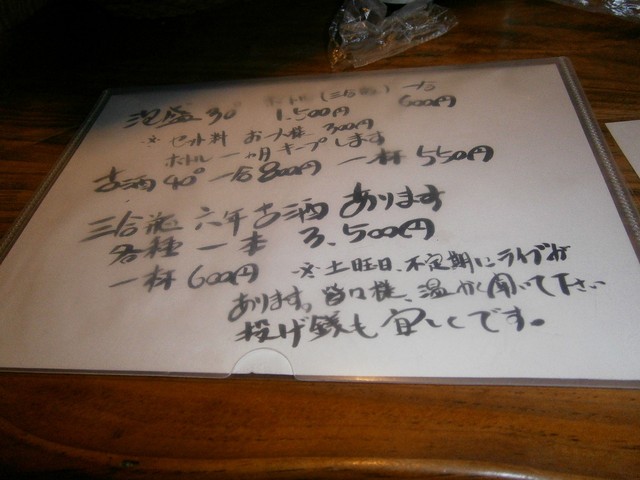 泡盛 30° ボトル (三合瓶) 一合
1,500円 600円
※ セット料 お一人様 300円
ボトル 一ヶ月キープします
古酒 40° 一合 800円 一杯 550円
三合瓶 六年古酒 あります
各種 一本 3,500円
一杯 600円 ※ 土曜日、不定期にライブが
あります。皆々様、温かく聞いて下さい
投げ銭も宜しくです。